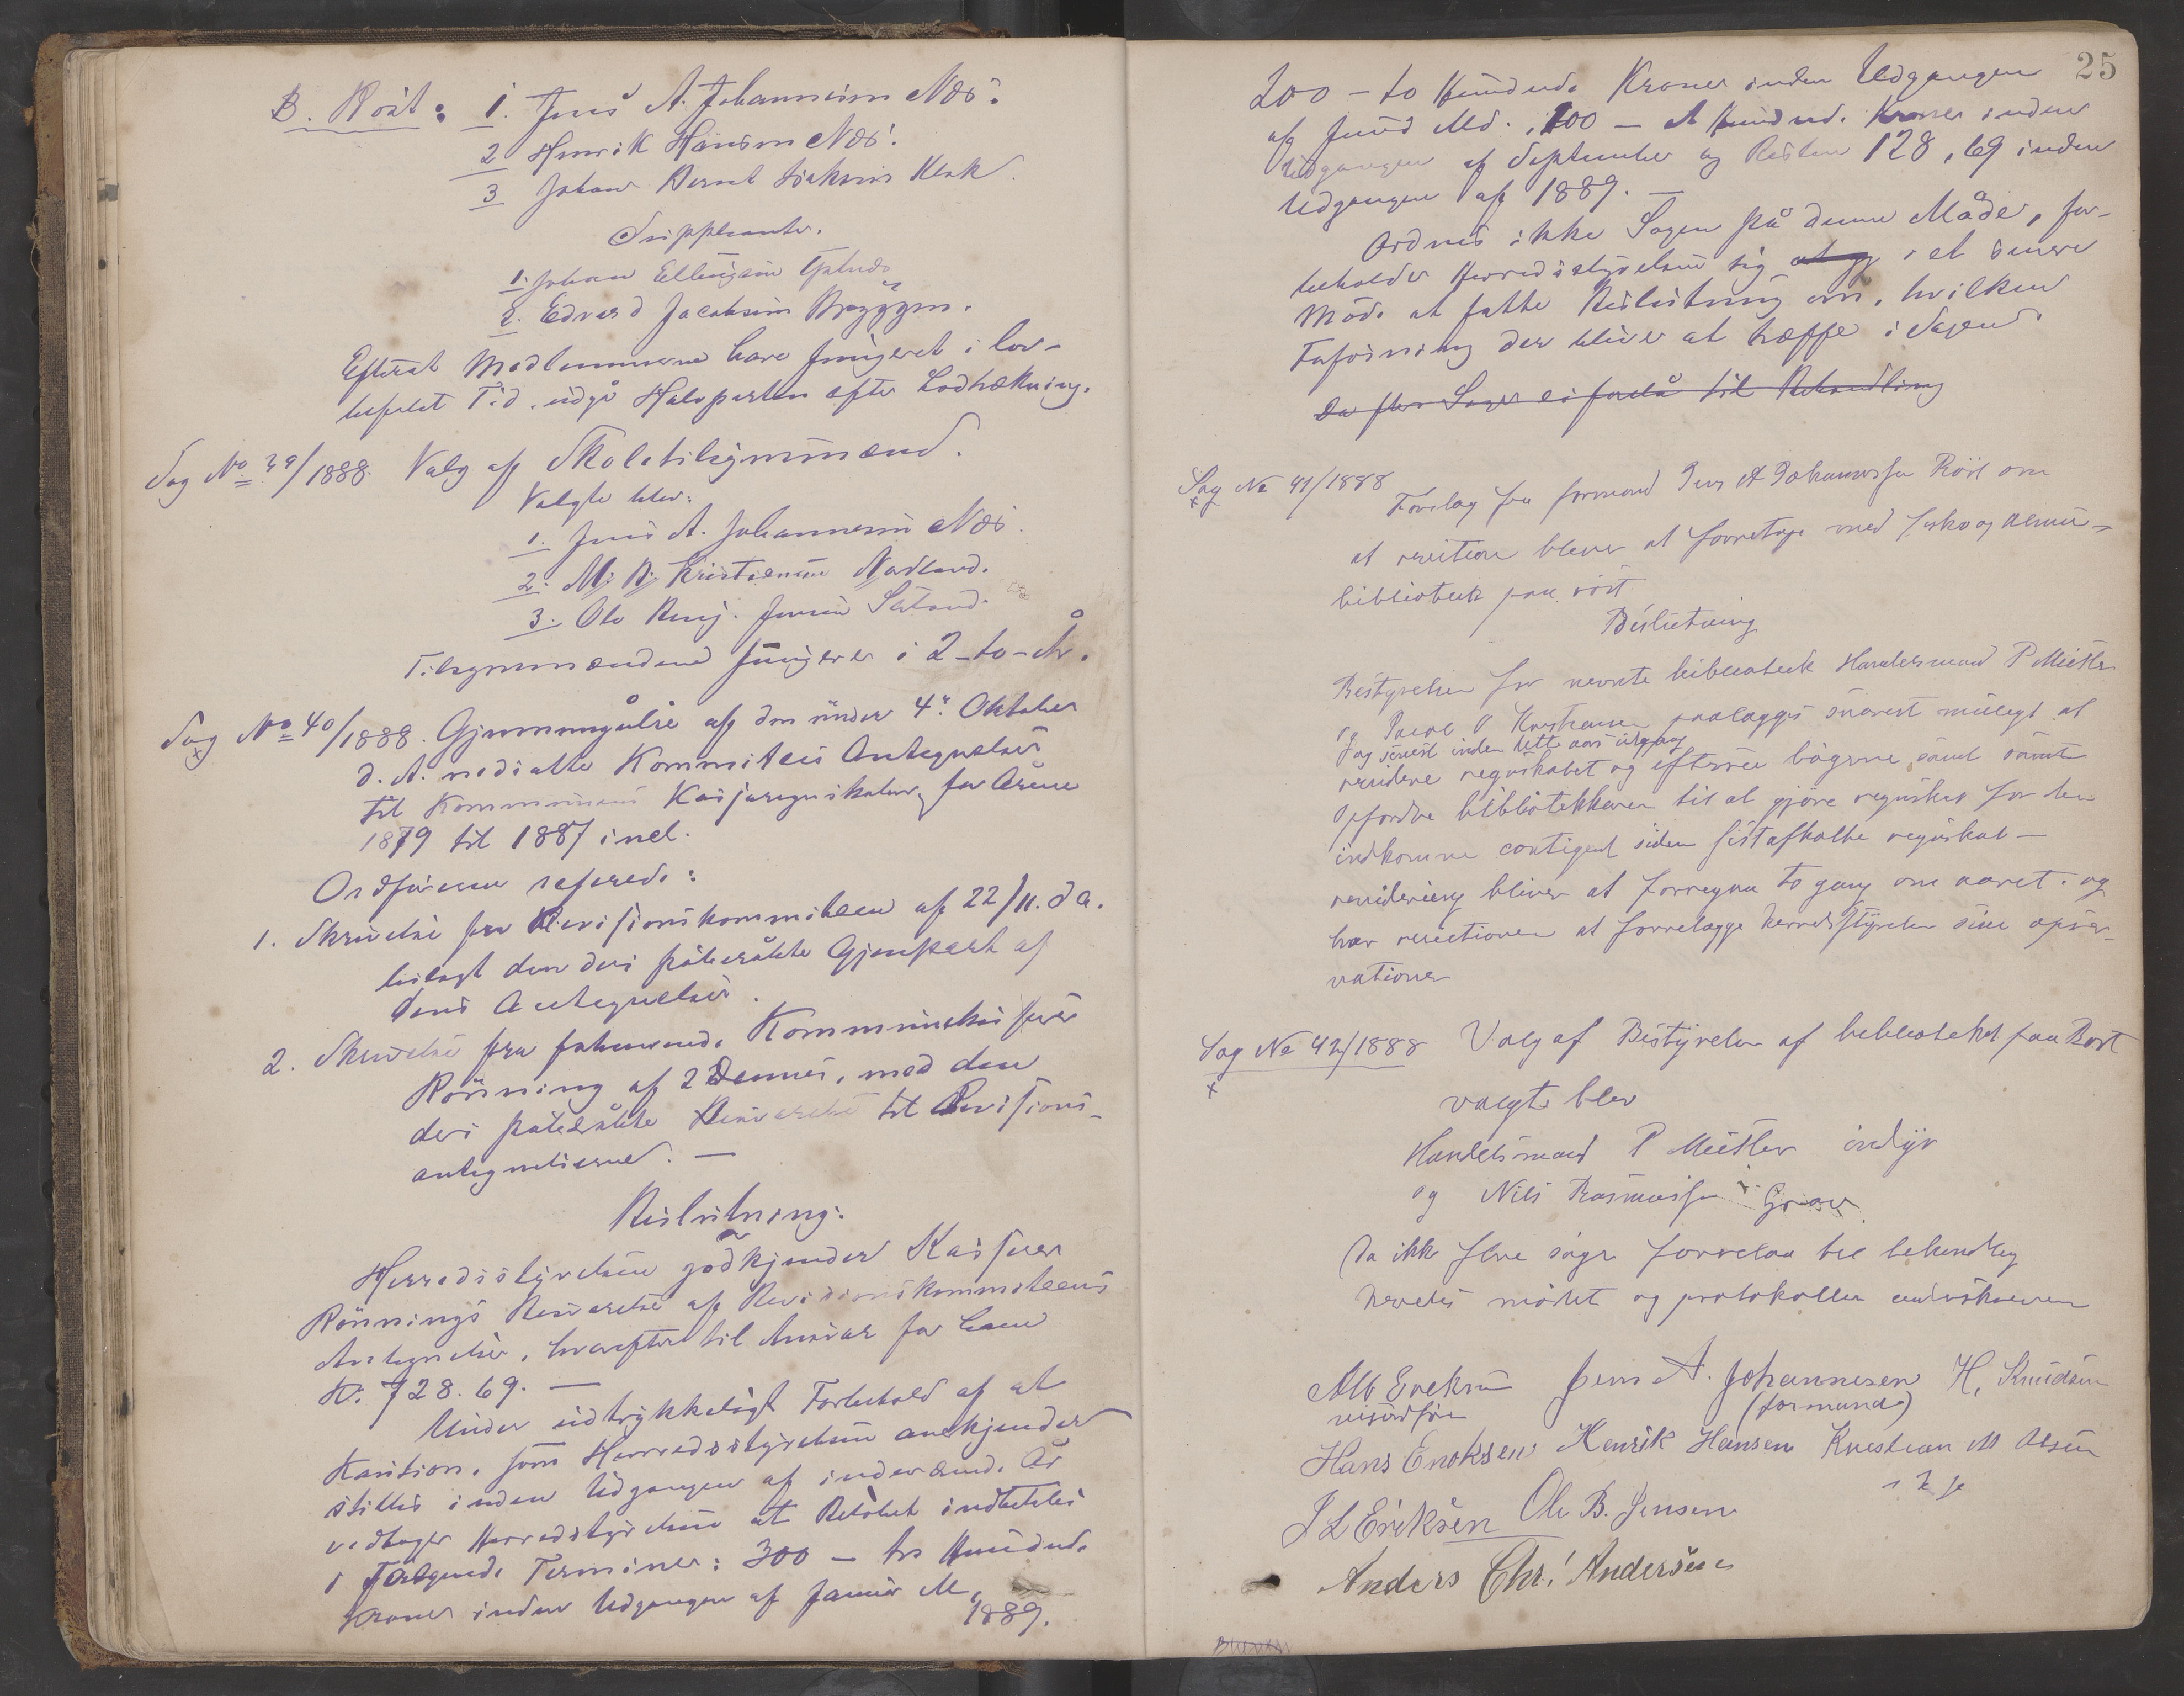 B. Röst: 1. Jens A. Johannesen Næs.
2 Henrik Hansen Næs.
3 Johan Bernt Isaksen Klak.
Suppleanter.
1. Johan Ellingsen
2. Edvard Jacobsen Bryggen.
Efterat Medlemmerne have fungeret i lov-
befalet Tid, udgå Halvparten efter Lodtrækning.
Sag No 39/1888. Valg af Skoletilsynsmænd.
Valgte blev:
1. Jens A. Johannesen Næs.
2. M. B. Kristensen Nordland.
3. Ole Benj. Jensen Sørland.
Tilsynsmændene fungerer i 2 - to - År.
Sag No 40/1888. Gjennemgåelse af den under 4de Oktober
d. A. nedsatte Kommitees Antegnelser
til Kommunens Kasseregnskaber for Årene
1879 til 1887 incl.
Ordføreren refererede:
1. Skrivelse fra Revisionskommiteen af 22/11. d A.
bilagt den deri påberåbte Gjenpart af
dens Antegnelser.
2. Skrivelse fra fhværende Kommunekasserer
Rönning af 2 Dennes, med den
deri påberåbte Besvarelse til Revisions-
antegnelserne. —
Beslutning:
Herredsstyrelsen godkjender Kasserer
Rönnings Besvarelse af Revisionskommiteens
Antegnelser, hvorefter til Ansvar for ham
Kr. 728.69. —
Under udtrykkeligt Forbehold af at
Kaution, som Herredsstyrelsen anerkjender
stilles inden Udgangen af indeværende År
vedtager Herredsstyrelsen at Beløbet indbetales
i følgende Terminer: 300 — tre Hundrede
Kroner inden Udgangen af Januar M.
1889.
25
200 — to Hundrede Kroner inden Udgangen
af Juni Md. 100 — et Hundrede Kroner inden
Udgangen af September og Resten 128,69 inden
Udgangen af 1889. —
Ordnes ikke Sagen på denne Måde, for-
beholder Herredsstyrelsen sig i et senere
Møde at fatte Beslutning om, hvilken
Forføining der bliver at træffe i Sagen.
Da flere Sager ei forelå til Behandling
Sag No 41/1888
Forslag fra formand Jens A Johannesen Röst om
at revition blever at forretage med
bibliotek paa röst
Beslutning
Bestyrelsen for nevnte bibliotek Handelsmand P Meitler
og P paalægges snarest muligt at
og senest inden dette aars utgang
revidere regnskabet og efterse bøgerne samt
opfordre bibliotekaren til at gjöre regnskab for den
indkomne contigent siden sist afholte regnskab —
revidering bliver at forregaa to gang om aaret. og
har revitionen at forrelægge herredsstyrelsen sine opser-
vationer
Sag No 42/1888 Valg af Bestyrelse af biblioteket paa Röst
valgte blev
Handelsmand P Meitler
og Nils Rasmussen
Da ikke flere sager forrelaa til behandling
hævedes mödet og protokollen underskreven
Alb Eriksen Jens A. Johannesen H. Knudsen
viseordförer (formand)
Hans Enoksen Henrik Hansen Kristian M Olsen
J L Eriksen Ole B. Jensen
Anders Chr. Andersen